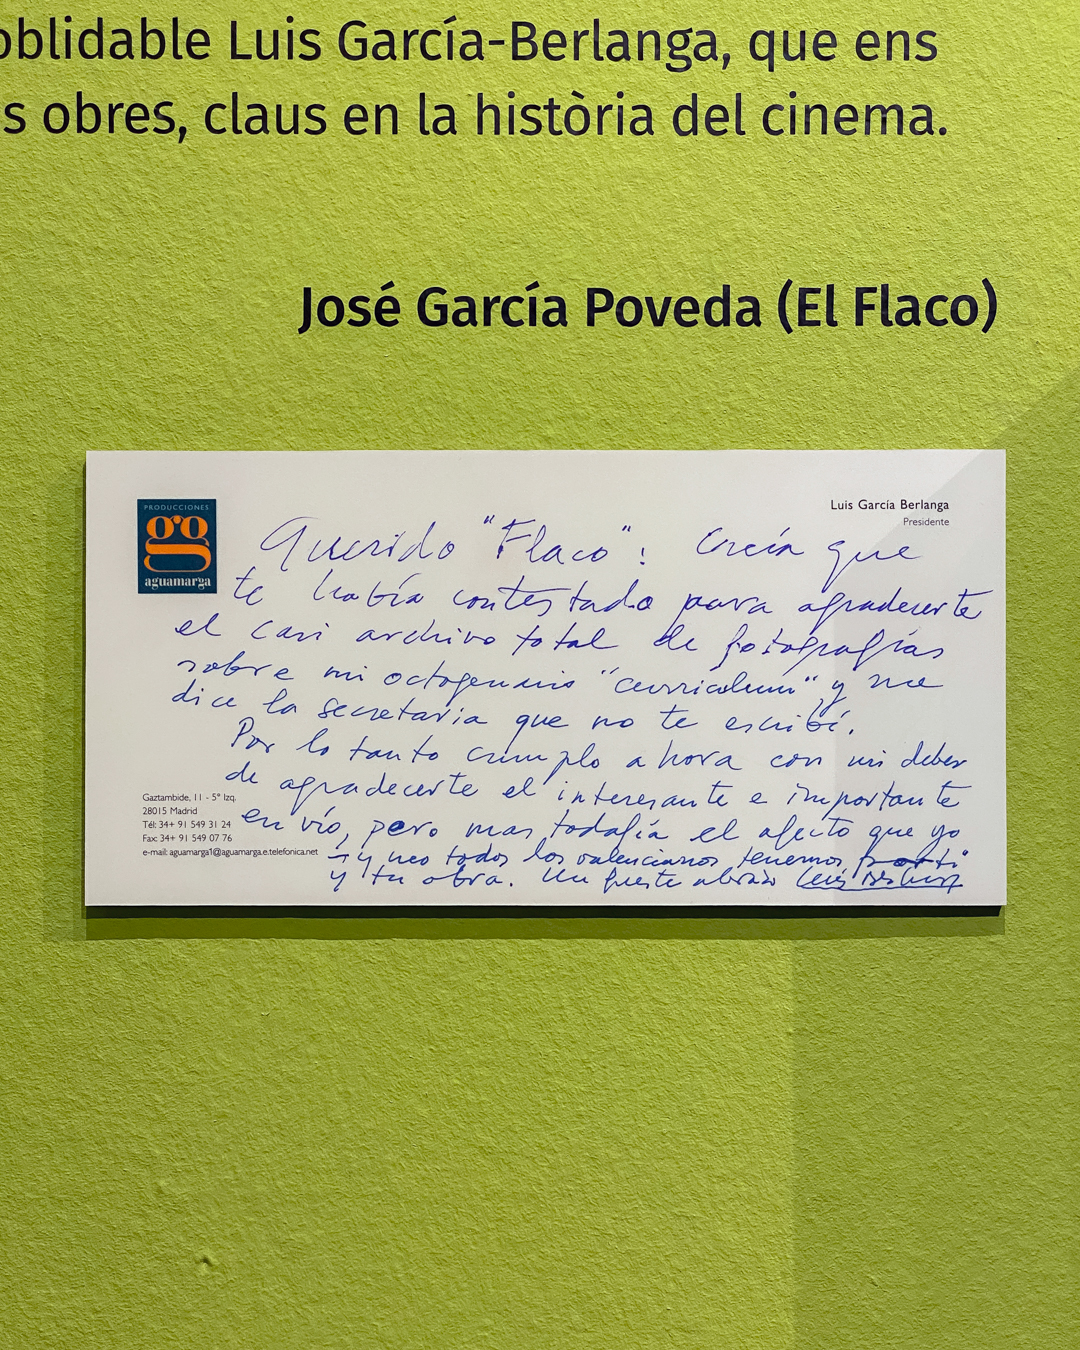 oblidable Luis García-Berlanga, que ens
s obres, claus en la història del cinema.
José García Poveda (El Flaco)
PRODUCCIONES
aguamarga
Luis García Berlanga
Presidente
Querido "Flaco": Creía que
te había contestado para agradecerte
el casi archivo total de fotografías
sobre mi octogenario "curriculum" y me
dice la secretaria que no te escribí.
Por lo tanto cumplo ahora con mi deber
de agradecerte el interesante e importante
envío, pero mas todafía el afecto que yo
y todos los valencianos tenemos por ti
y tu obra. Un fuerte abrazo Luis Berlanga
Gaztambide, 11 - 5º Izq.
28015 Madrid
Tél: 34+ 91 549 31 24
Fax: 34+ 91 549 07 76
e-mail: aguamarga1@aguamarga.e.telefonica.net